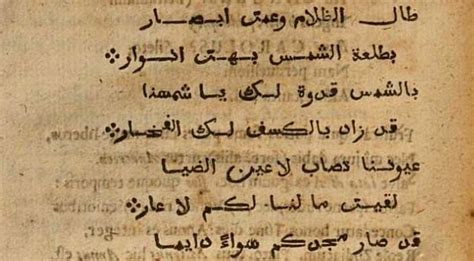 طال الظلام وعمت ابصار
بطلعة الشمس بهتت انوار
بالشمس قدوة لك يا شمهنا
قد زان بالكسف لك الفخار
عيوننا تصاب لاعين الضيا
لقيت ما لنا لكم لا عار
قد صار مجدكم سواءً دايما